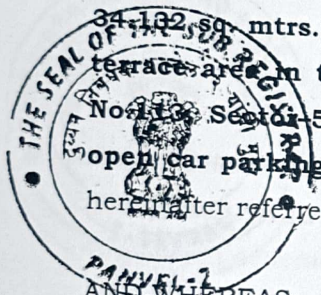 34.132 sq. mtrs.
terrace area in t
No.113, Sector-5
open car parking
hereinafter referre
AND WHEREAS
THE SEAL OF THE SUB REGISTRAR
PANVEL-2